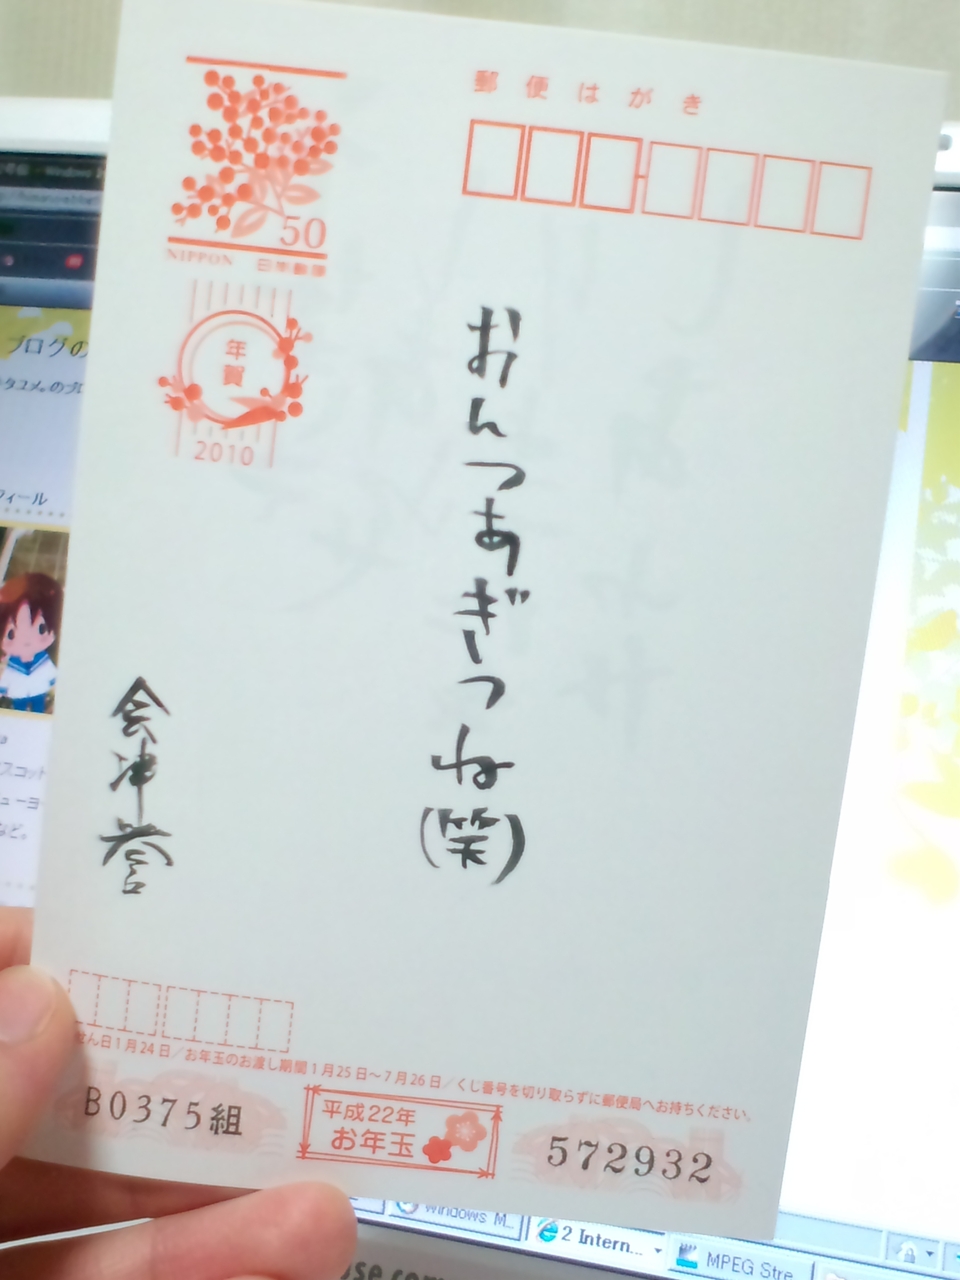 郵便はがき
50
NIPPON 日本郵便
年賀
2010
おんつあぎつね(笑)
会津誉
せん日1月24日／お年玉のお渡し期間1月25日〜7月26日／くじ番号を切り取らずに郵便局へお持ちください。
B0375組
平成22年
お年玉
572932
ブログの
フィール
など。
Windows M...
2 Intern...
MPEG Stre